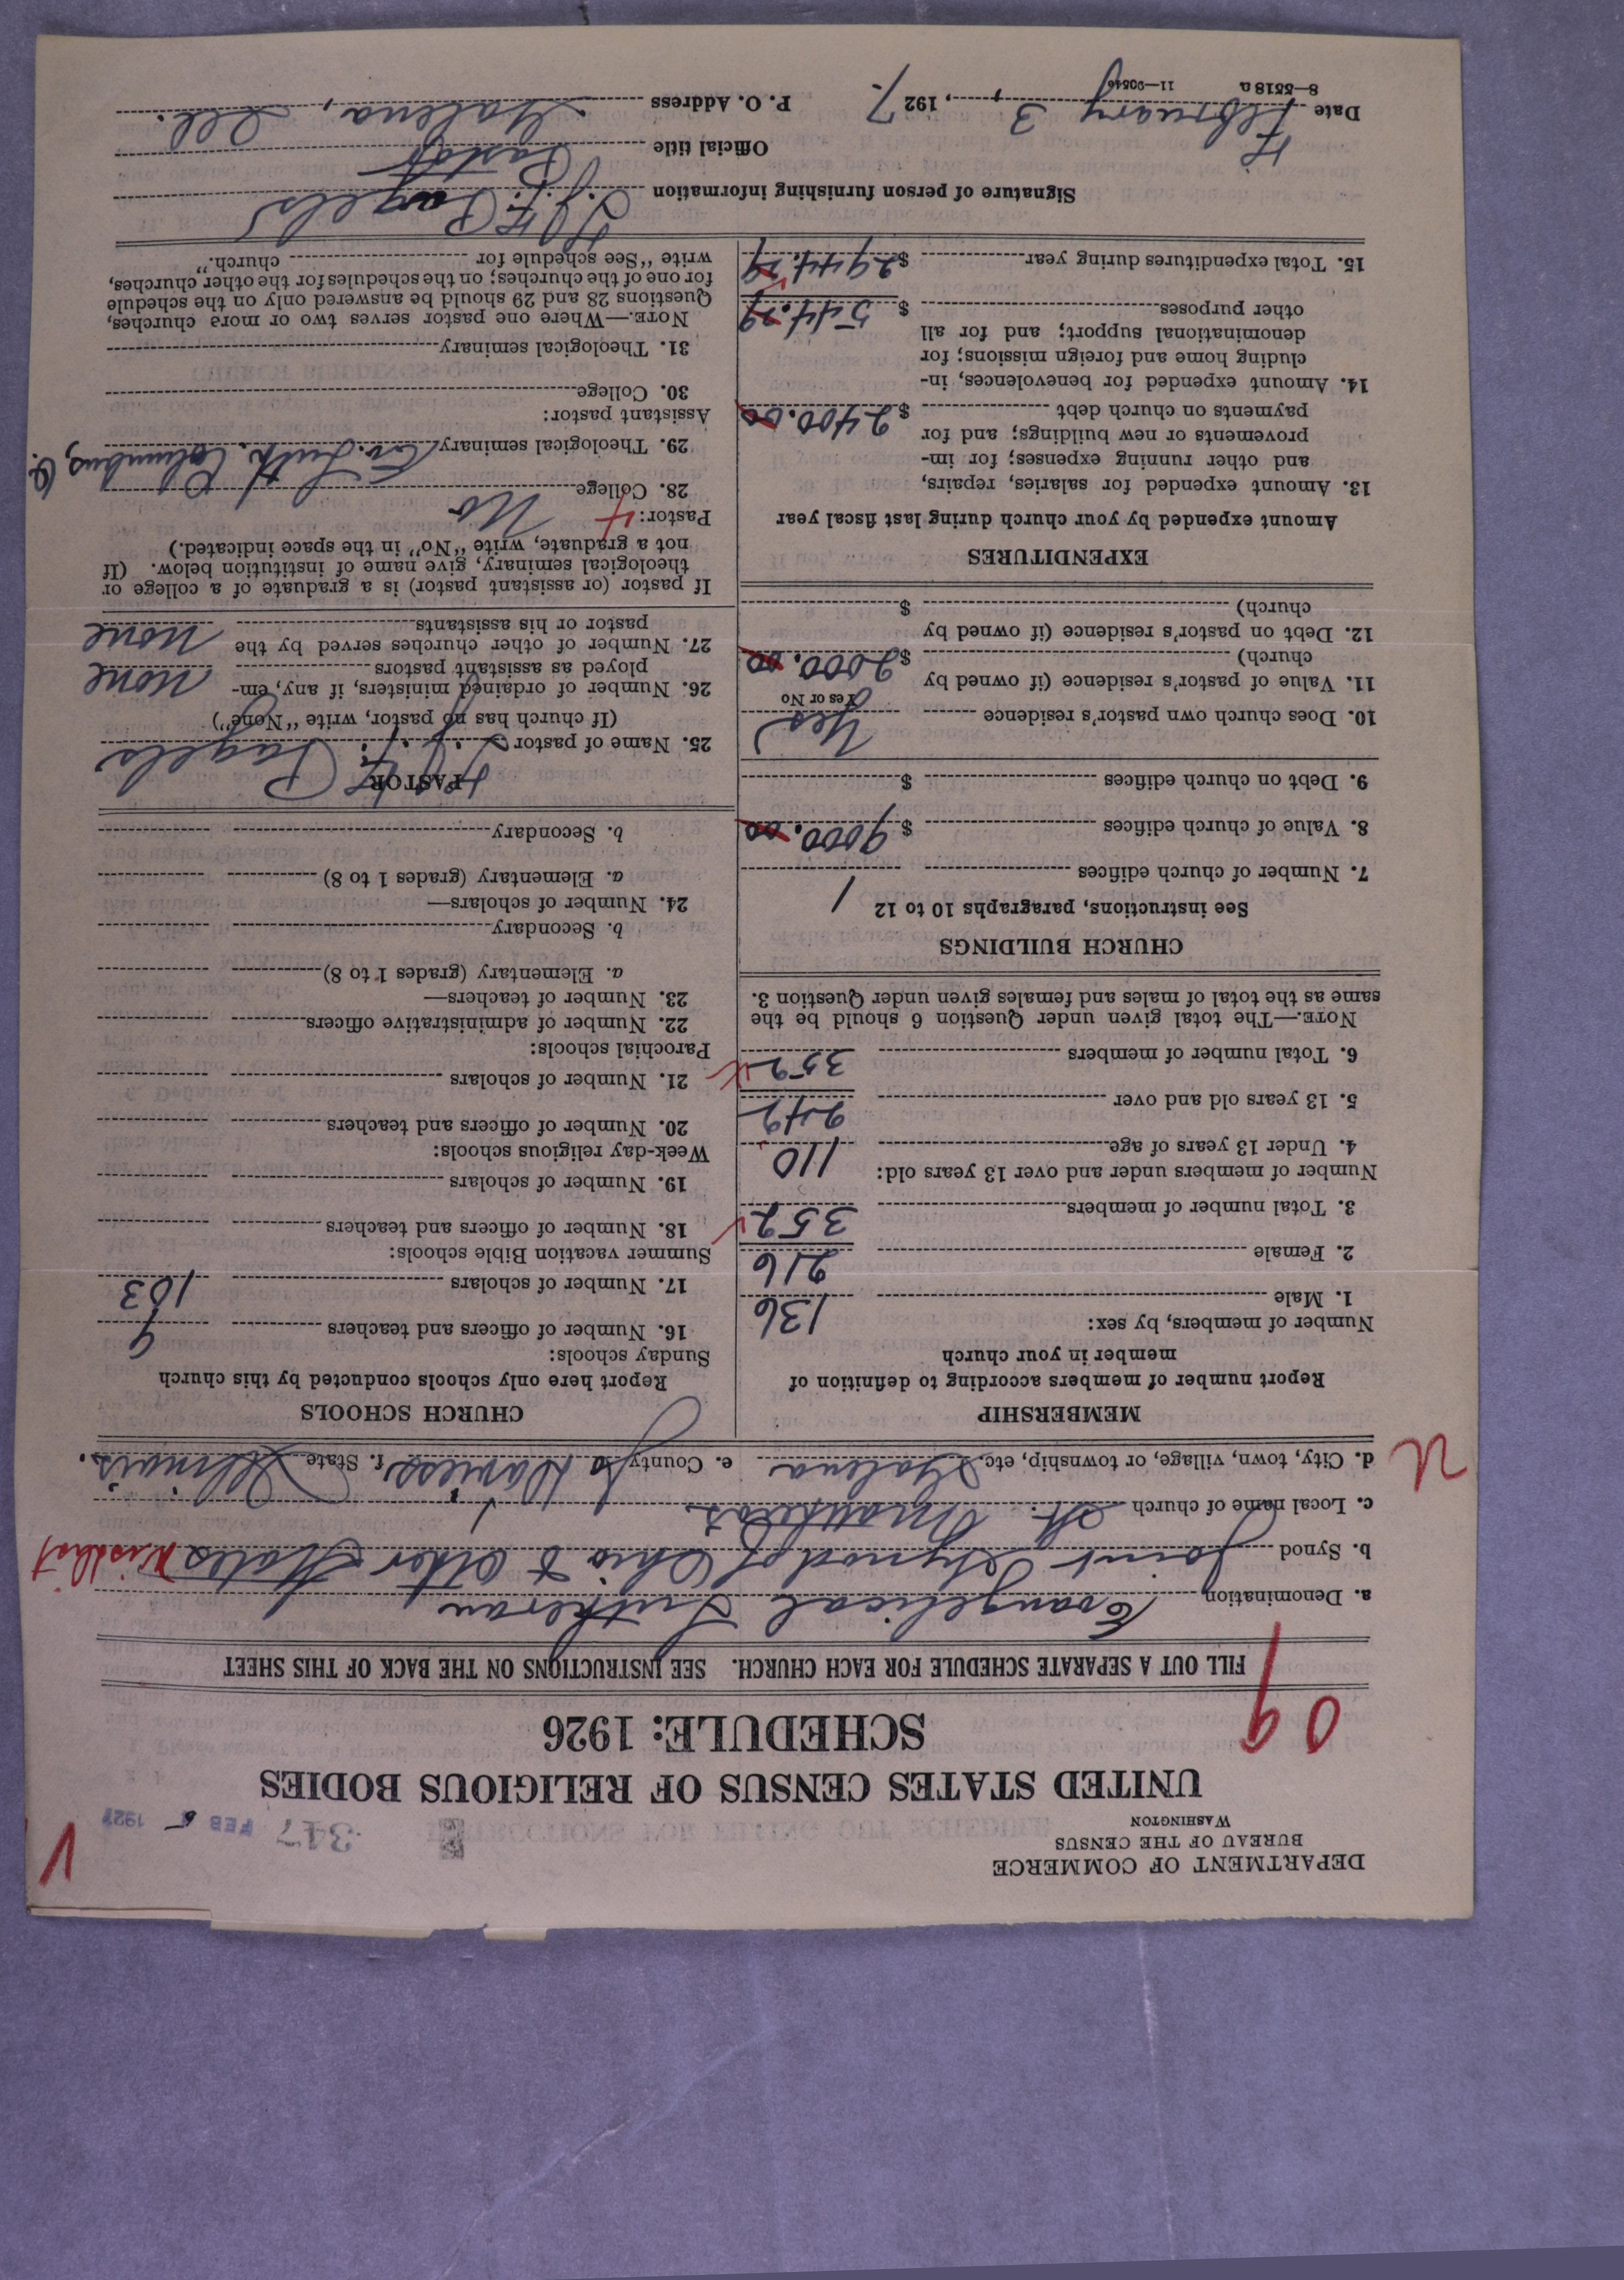 DEPARTMENT OF COMMERCE
BUREAU OF THE CENSUS
WASHINGTON
347 FEB 5 1927
UNITED STATES CENSUS OF RELIGIOUS BODIES
SCHEDULE: 1926
09
FILL OUT A SEPARATE SCHEDULE FOR EACH CHURCH. SEE INSTRUCTIONS ON THE BACK OF THIS SHEET
a. Denomination Evangelical Lutheran
b. Synod Joint Synod of Ohio & Other States
c. Local name of church St. Matthew's
d. City, town, village, or township, etc. Galena e. County Jo Daviess f. State Illinois.
MEMBERSHIP
Report number of members according to definition of
member in your church
Number of members, by sex:
1. Male 136
2. Female 216
3. Total number of members 352
Number of members under and over 13 years old:
4. Under 13 years of age 110
5. 13 years old and over 242
6. Total number of members 352
NOTE.—The total given under Question 6 should be the
same as the total of males and females given under Question 3.
CHURCH BUILDINGS
See instructions, paragraphs 10 to 12
7. Number of church edifices 1
8. Value of church edifices $ 9000.00
9. Debt on church edifices $
10. Does church own pastor's residence Yes
Yes or No
11. Value of pastor's residence (if owned by
church) $ 2000.00
12. Debt on pastor's residence (if owned by
church) $
EXPENDITURES
Amount expended by your church during last fiscal year
13. Amount expended for salaries, repairs,
and other running expenses; for im-
provements or new buildings; and for
payments on church debt $ 2400.00
14. Amount expended for benevolences, in-
cluding home and foreign missions; for
denominational support; and for all
other purposes $ 544.29
15. Total expenditures during year $ 2944.29
CHURCH SCHOOLS
Report here only schools conducted by this church
Sunday schools:
16. Number of officers and teachers 9
17. Number of scholars 103
Summer vacation Bible schools:
18. Number of officers and teachers
19. Number of scholars
Week-day religious schools:
20. Number of officers and teachers
21. Number of scholars
Parochial schools:
22. Number of administrative officers
23. Number of teachers—
a. Elementary (grades 1 to 8)
b. Secondary
24. Number of scholars—
a. Elementary (grades 1 to 8)
b. Secondary
PASTOR
25. Name of pastor F. Pagels
(If church has no pastor, write "None")
26. Number of ordained ministers, if any, em-
ployed as assistant pastors None
27. Number of other churches served by the
pastor or his assistants None
If pastor (or assistant pastor) is a graduate of a college or
theological seminary, give name of institution below. (If
not a graduate, write "No" in the space indicated.)
Pastor:
28. College No
29. Theological seminary Ev. Luth. Columbus, O.
Assistant pastor:
30. College
31. Theological seminary
NOTE.—Where one pastor serves two or more churches,
Questions 28 and 29 should be answered only on the schedule
for one of the churches; on the schedules for the other churches,
write "See schedule for church."
Signature of person furnishing information F. Pagels
Official title Pastor
Date February 3, 1927. P. O. Address Galena, Ill.
8—5518 a